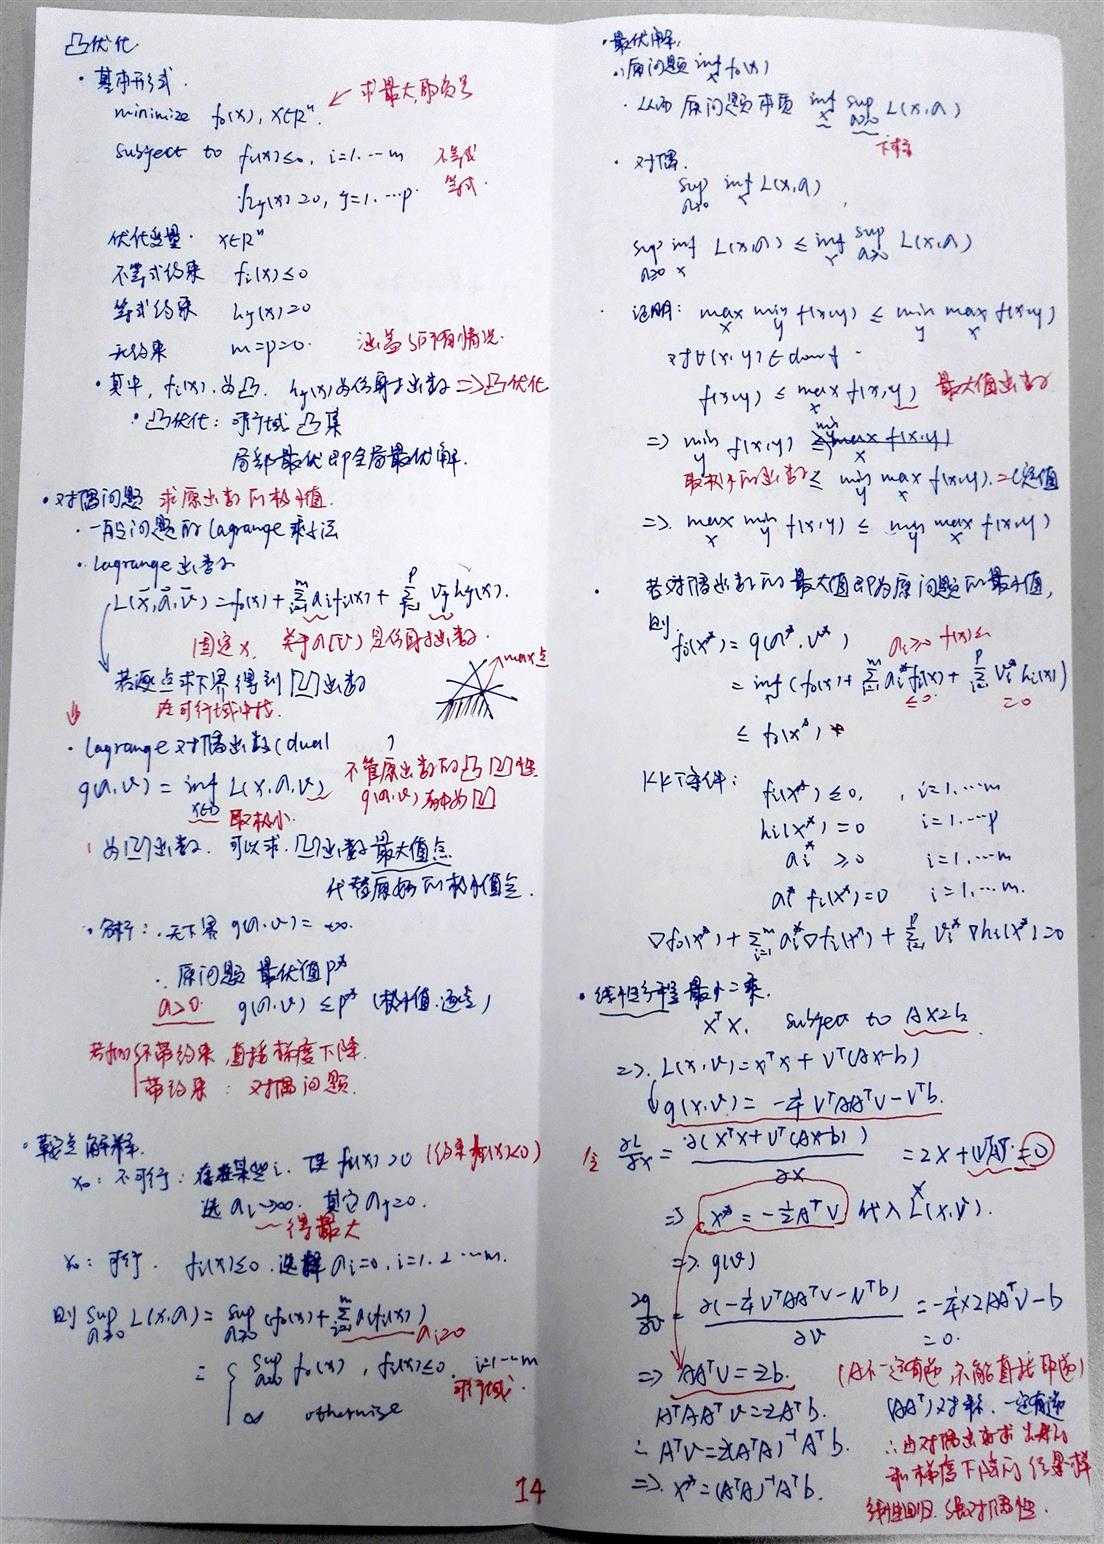 凸优化
· 基本形式.
minimize f₀(x), x∈Rⁿ. ← 求最大,取负号
subject to fᵢ(x)≤0, i=1.…m 不等式
hⱼ(x)=0, j=1,…p. 等式.
优化变量. x∈Rⁿ
不等式约束 fᵢ(x)≤0
等式约束 hⱼ(x)=0
无约束 m=p=0. 涵盖所有情况.
· 其中, fᵢ(x).为凸. hⱼ(x)为仿射函数 ⇒凸优化
· 凸优化: 可行域 凸集
局部最优即全局最优解.
· 对偶问题 求原函数的极小值.
· 一般问题的Lagrange乘子法
· Lagrange函数
L(x̄,ā,v̄)=f₀(x)+Σᵢ₌₁ᵐ aᵢfᵢ(x)+Σⱼ₌₁ᵖ vⱼhⱼ(x).
固定x, 关于a(v)是仿射函数.
若逐点求下界得到凹函数 max点
在可行域中找.
· Lagrange对偶函数(dual )
g(a,v) = inf L(x,a,v) 不管原函数的凸凹性
x∈D 取极小. g(a,v)
为凹函数. 可以求.凹函数最大值点
代替原始的极小值点.
· 分析: . 无下界 g(a,v)= -∞.
. 原问题 最优值p*
a>0. g(a,v) ≤p* (极小值.逐点)
不带约束,直接梯度下降.
带约束: 对偶问题.
· 鞍点解释.
x₀: 不可行: 存在某些i. 使 fᵢ(x)>0 (约束fᵢ(x)<0)
选 aᵢ→∞. 其它aⱼ=0.
得最大
x₀: 可行. fᵢ(x)≤0. 选择 aᵢ=0, i=1.2…m.
则 sup L(x,a) = sup (f₀(x)+Σᵢ₌₁ᵐ aᵢfᵢ(x))
a≥0 a≥0 aᵢ≥0
= { sup f₀(x), fᵢ(x)≤0. i=1…m
a≥0 可行域.
∞ otherwise
14
· 最优解,
∴原问题 inf f₀(x)
x
· 从而 原问题本质 inf sup L(x,a)
x a≥0
· 对偶.
sup inf L(x,a)
a≥0 x
sup inf L(x,a) ≤ inf sup L(x,a)
a≥0 x x a≥0
· 证明: max min f(x,y) ≤ min max f(x,y)
x y y x
对∀(x.y)∈dom f.
f(x,y) ≤ max f(x,y) 最大值函数
x
⇒ min f(x,y)
y
取极小的函数 ≤ min max f(x,y).=定值
y x
⇒. max min f(x,y) ≤ min max f(x,y)
x y y x
· 若对偶函数的最大值即为原问题的最小值,
则 f₀(x*) = g(a*,v*) aᵢ≥0 fᵢ(x)≤
= inf (f₀(x)+Σᵢ₌₁ᵐ aᵢ*fᵢ(x)+Σᵢ₌₁ᵖ vᵢ*hᵢ(x))
x ≤0 =0
≤ f₀(x*)
KKT条件: fᵢ(x*) ≤0, , i=1,…m
hᵢ(x*) =0 i=1.…p
aᵢ* ≥0 i=1,…m
aᵢ* fᵢ(x*)=0 i=1,…m.
∇f₀(x*)+Σᵢ₌₁ᵐ aᵢ*∇fᵢ(x*)+Σᵢ₌₁ᵖ vᵢ*∇hᵢ(x*)=0
· 线性方程最小二乘.
xᵀx. subject to Ax=b
⇒. L(x,v)=xᵀx + vᵀ(Ax-b)
g(x,v) = -¼ vᵀAAᵀv-vᵀb.
令 ∂L/∂x = ∂(xᵀx+vᵀ(Ax-b))/∂x = 2x+(vᵀA)ᵀ=0
⇒ x*=-½Aᵀv 代入L(x,v).
⇒. g(v)
∂g/∂v = ∂(-¼vᵀAAᵀv-vᵀb)/∂v = -¼×2AAᵀv-b
=0.
⇒ AAᵀv=2b. (A不一定有逆,不能直接取逆)
AᵀAAᵀv=2Aᵀb. (AAᵀ)对称.一定有逆
∴ Aᵀv=2(AᵀA)⁻¹Aᵀb. ∴由对偶函数求出来的
⇒. x*=(AᵀA)⁻¹Aᵀb. 和梯度下降的结果一样
线性回归.强对偶性.